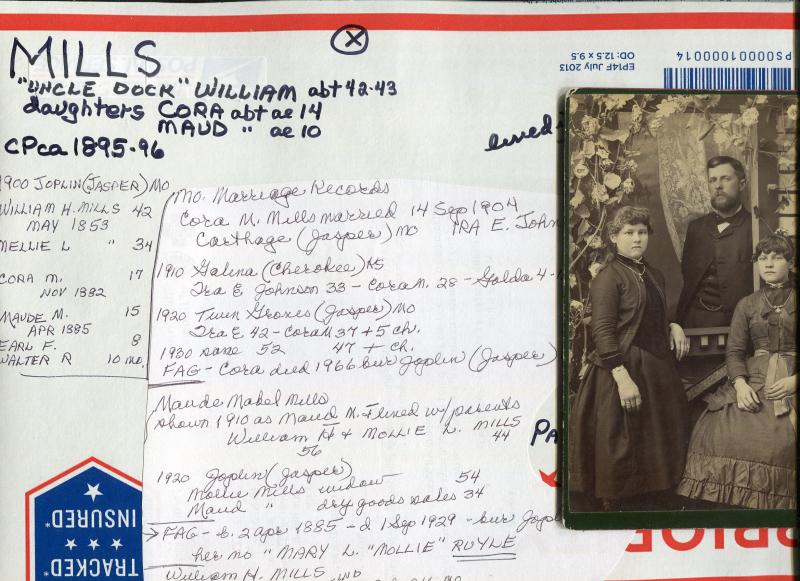 MILLS
"UNCLE DOCK" WILLIAM abt 42-43
daughters CORA abt ae 14
MAUD " ae 10
CPca 1895-96
lived
EPI4F July 2013
OD: 12.5 x 9.5
PS00001000014
1900 JOPLIN (JASPER) MO
WILLIAM H. MILLS 42
MAY 1853
MELLIE L " 34
CORA M. 17
NOV 1882
MAUDE M. 15
APR 1885
EARL F. 8
WALTER R 10 mo.
Mo. Marriage Records
Cora M. Mills married 14 Sep 1904
Carthage (Jasper) MO IRA E. John
1910 Galena (Cherokee) KS
Ira E Johnson 33 - Cora M. 28 - Golda 4 -
1920 Twin Groves (Jasper) MO
Ira E 42 - Cora M 37 + 5 ch.
1930 same 52 47 + ch.
FAG - Cora died 1966 bur Joplin (Jasper)
Maude Mabel Mills
shown 1910 as Maud M. lived w/parents
William H + MOLLIE L. MILLS
56 44
PA
1920 Joplin (Jasper)
Mollie Mills widow 54
Maud " dry goods sales 34
FAG - b. 2 apr 1885 - d 1 Sep 1929 - bur Jopl
her mo "MARY L. "MOLLIE" RUYLE
William H. MILLS
TRACKED*
INSURED*